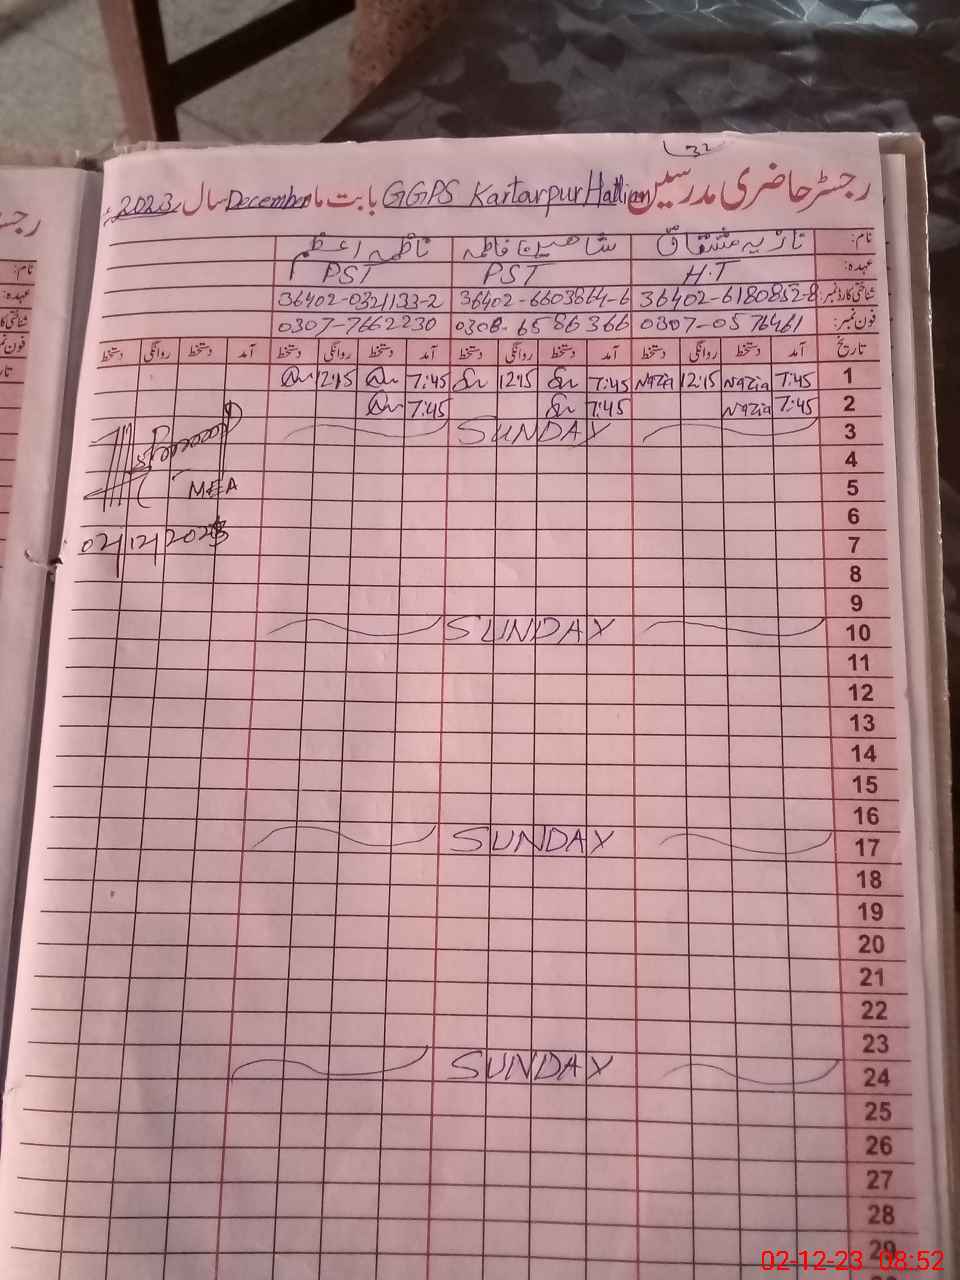 32
رجسٹر حاضری مدرسین GGPS Kartarpur Hattian بابت ماہ December سال 2023ء
نام: نازیہ مشتاق شاھین فاطمہ ناظمہ اعظم
عہدہ: H.T PST PST
شناختی کارڈ نمبر: 36402-6180852-8 36402-6603864-6 36402-0321133-2
فون نمبر: 0307-0576461 0308-6586366 0307-7662230
تاریخ آمد دستخط روانگی دستخط آمد دستخط روانگی دستخط آمد دستخط روانگی دستخط آمد دستخط روانگی دستخط
1 7:45 Nazia 12:15 Nazia 7:45 12:15 7:45 12:15
2 7:45 Nazia 7:45 7:45
3 SUNDAY
4
5 MEA
6
7 02/12/2023
8
9
10 SUNDAY
11
12
13
14
15
16
17 SUNDAY
18
19
20
21
22
23
24 SUNDAY
25
26
27
28
29
نام:
عہدہ:
02-12-23 08:52